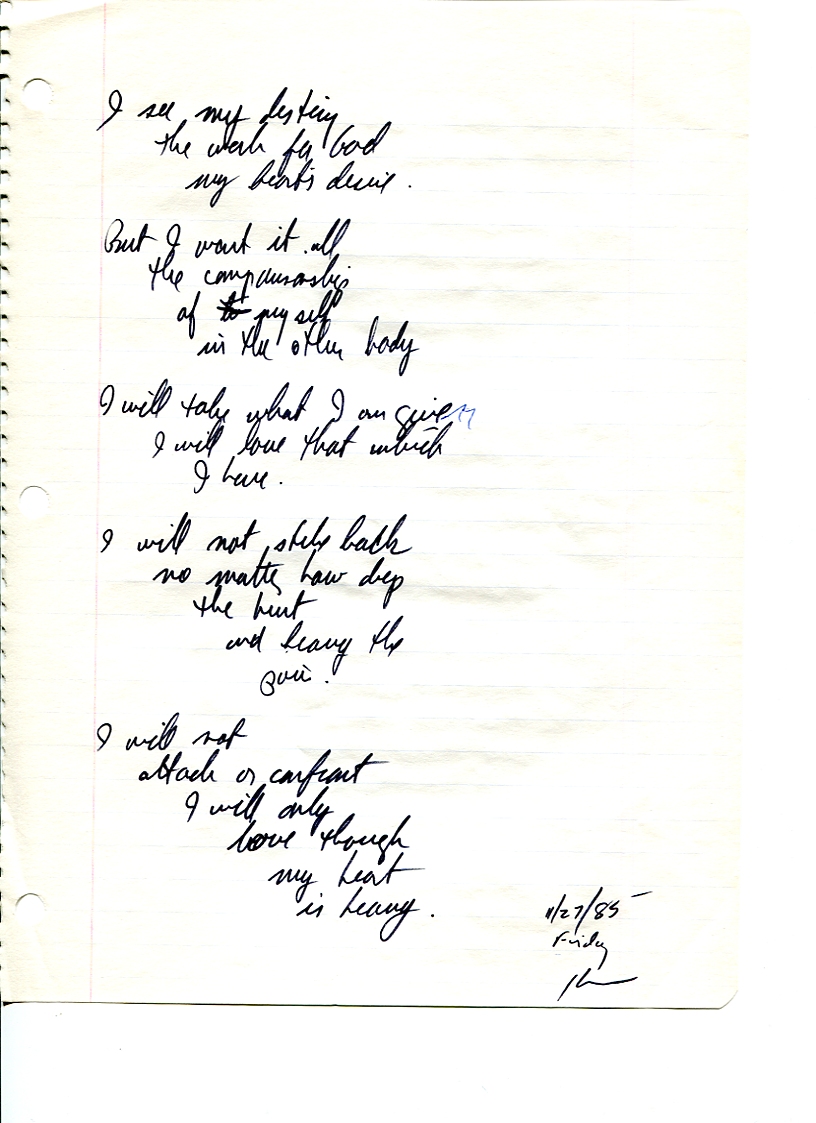 I see my destiny
the work for God
my heart's desire.
But I want it all
the companionship
of to my self
in the other body
I will take what I am given
I will love that which
I have.
I will not strike back
no matter how deep
the hurt
and heavy the
pain.
I will not
attack or confront
I will only
love though
my heart
is heavy.
11/27/85
Friday